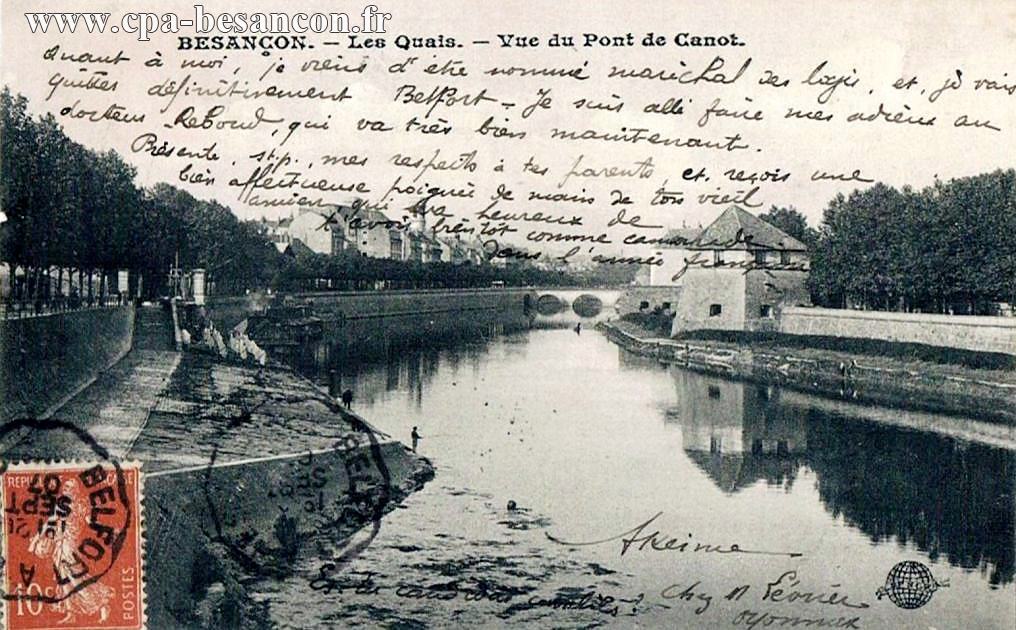 www.cpa-besancon.fr
BESANÇON. — Les Quais. — Vue du Pont de Canot.
Quant à moi, je viens d'être nommé maréchal des logis, et, je vais
quitter définitivement Belfort - Je suis allé faire mes adieux au
docteur Reboud, qui va très bien maintenant.
Présente, s.t.p., mes respects à tes parents, et, reçois une
bien affectueuse poignée de mains de ton vieil
qui sera heureux de
t'avoir bientôt comme camarade
dans l'armée française
BELFORT
SEPT
07
BELFORT
SEPT
REPUBLIQUE FRANÇAISE
10c
POSTES
Chez M
Oyonnax